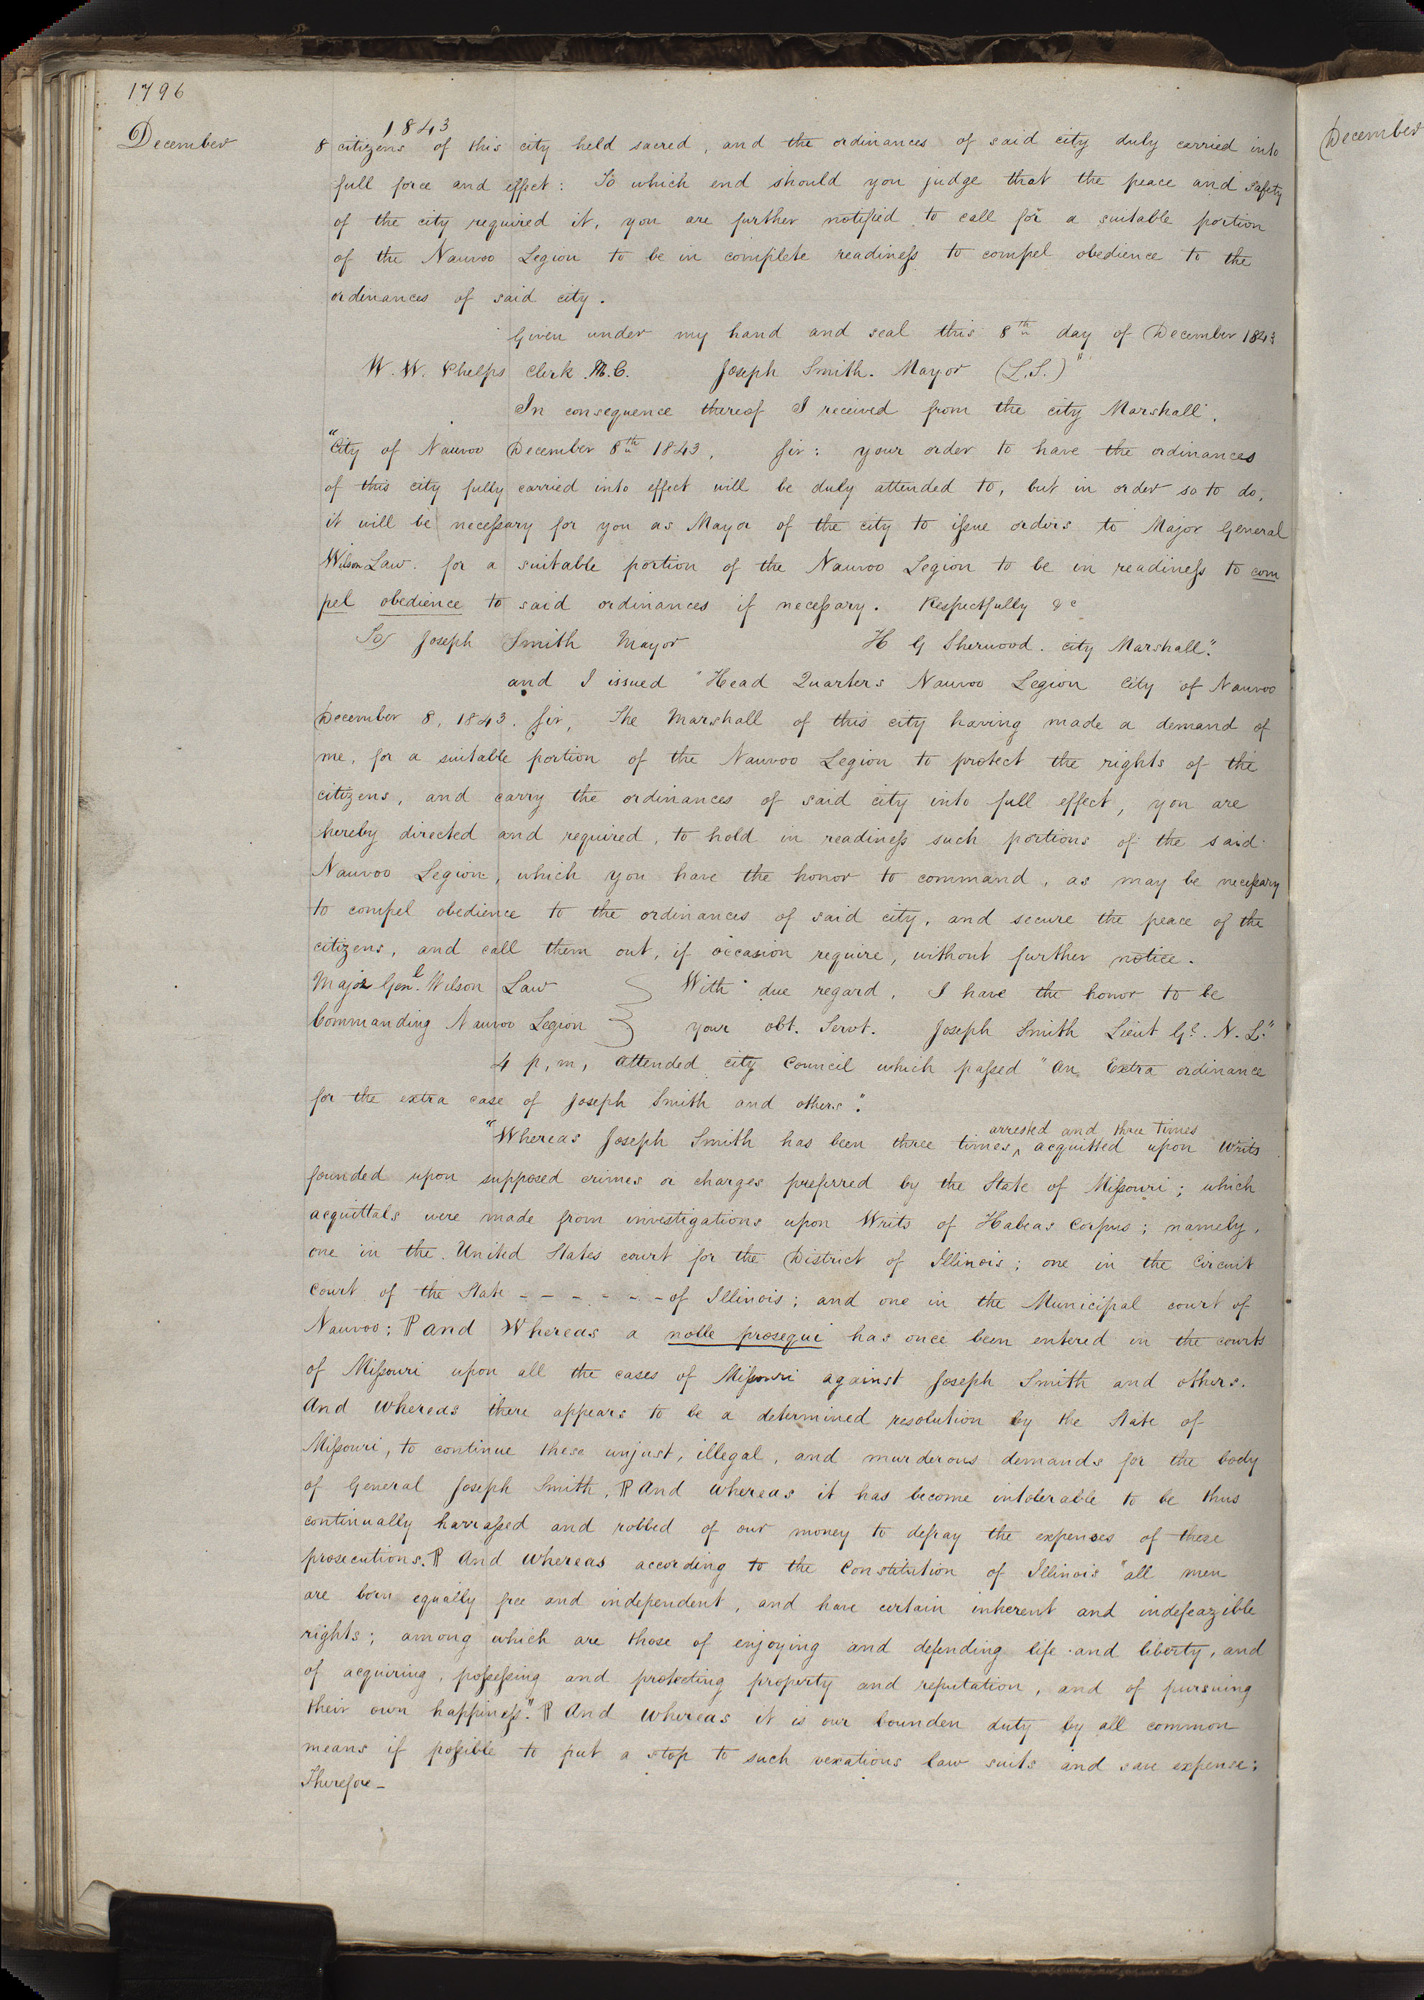 1796
1843
December 8 citizens of this city held sacred, and the ordinances of said city duly carried into
full force and effect: To which end should you judge that the peace and safety
of the city required it, you are further notified to call for a suitable portion
of the Nauvoo Legion to be in complete readiness to compel obedience to the
ordinances of said city.
Given under my hand and seal this 8th day of December 1843
W. W. Phelps Clerk M.C. Joseph Smith. Mayor (L.S.)"
In consequence thereof I received from the city Marshall.
"City of Nauvoo December 8th 1843. Sir: your order to have the ordinances
of this city fully carried into effect will be duly attended to, but in order so to do,
it will be necessary for you as Mayor of the city to issue orders to Major General
Wilson Law. for a suitable portion of the Nauvoo Legion to be in readiness to com
pel obedience to said ordinances if necessary. Respectfully &c
To Joseph Smith Mayor H G Sherwood. city Marshall."
and I issued "Head Quarters Nauvoo Legion City of Nauvoo
December 8, 1843. Sir, The Marshall of this city having made a demand of
me, for a suitable portion of the Nauvoo Legion to protect the rights of the
citizens, and carry the ordinances of said city into full effect, you are
hereby directed and required, to hold in readiness such portions of the said
Nauvoo Legion, which you have the honor to command, as may be necessary
to compel obedience to the ordinances of said city, and secure the peace of the
citizens, and call them out, if occasion require, without further notice.
Major Genl. Wilson Law } With due regard, I have the honor to be
Commanding Nauvoo Legion } your obt. Servt. Joseph Smith Lieut Gl. N. L."
4 p, m, attended city Council which passed "An Extra ordinance
for the extra case of Joseph Smith and others".
arrested and three times
"Whereas Joseph Smith has been three times ^ acquitted upon Writs
founded upon supposed crimes or charges preferred by the State of Missouri; which
acquittals were made from investigations upon Writs of Habeas Corpus; namely,
one in the United States court for the District of Illinois; one in the Circuit
court of the State - - - - - - of Illinois; and one in the Municipal court of
Nauvoo; ¶ And Whereas a nolle prosequi has once been entered in the courts
of Missouri upon all the cases of Missouri against Joseph Smith and others.
And Whereas there appears to be a determined resolution by the State of
Missouri, to continue these unjust, illegal, and murderous demands for the body
of General Joseph Smith, ¶ And Whereas it has become intolerable to be thus
continually harrassed and robbed of our money to defray the expenses of these
prosecutions. ¶ And Whereas according to the Constitution of Illinois "all men
are born equally free and independent, and have certain inherent and indefeazible
rights; among which are those of enjoying and defending life and liberty, and
of acquiring, possessing and protecting property and reputation, and of pursuing
their own happiness". ¶ And Whereas it is our bounden duty by all common
means if possible to put a stop to such vexatious law suits and save expense;
Therefore—
December